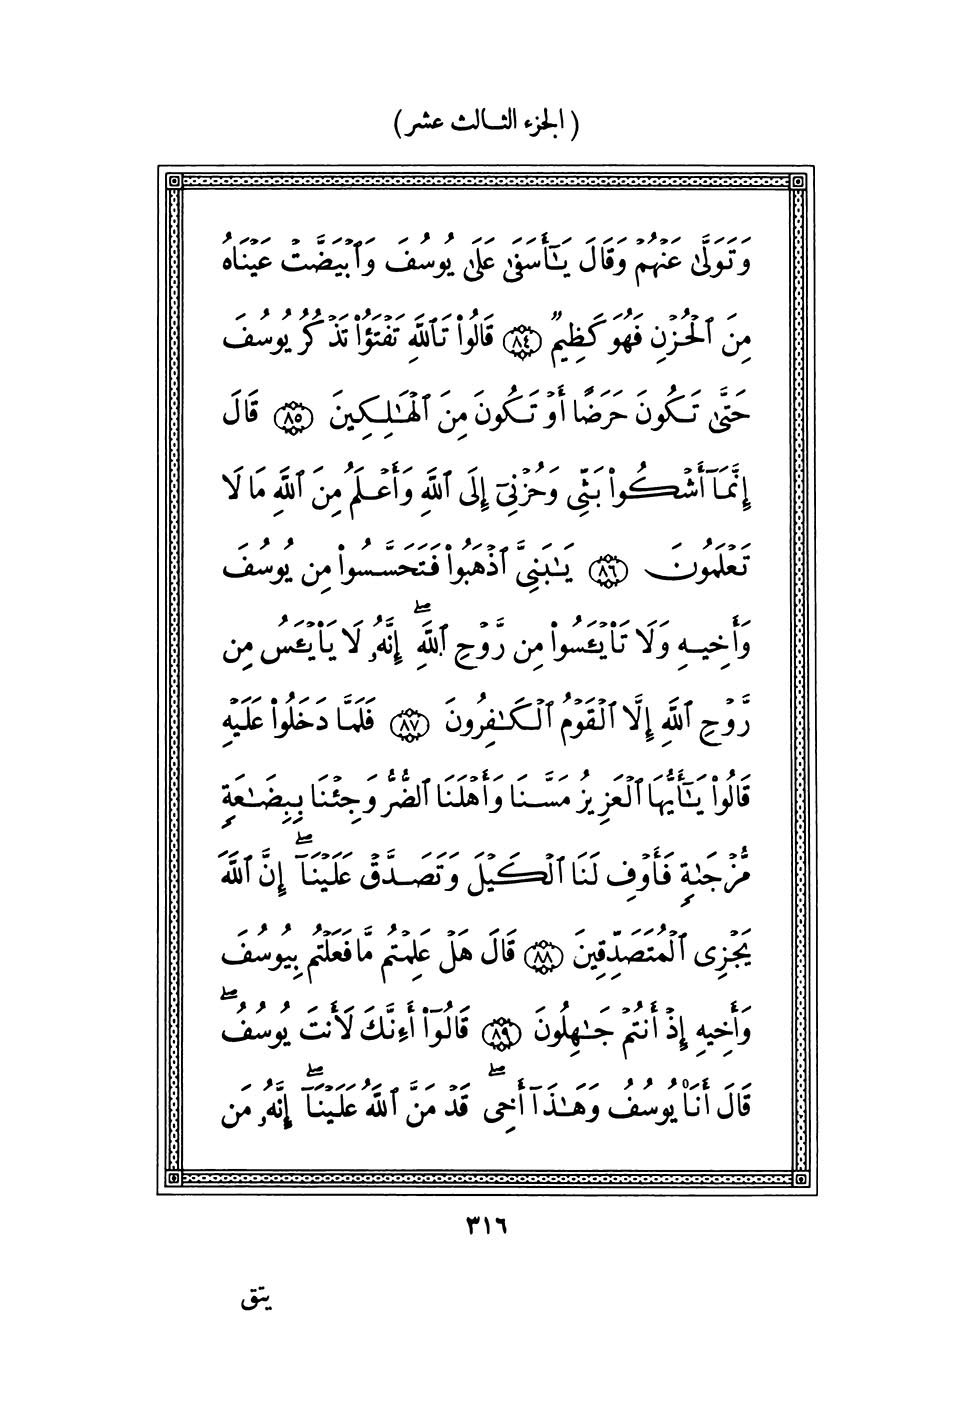 (الجزء الثالث عشر)
وَتَوَلَّىٰ عَنْهُمْ وَقَالَ يَـٰٓأَسَفَىٰ عَلَىٰ يُوسُفَ وَٱبْيَضَّتْ عَيْنَاهُ
مِنَ ٱلْحُزْنِ فَهُوَ كَظِيمٌ ۝٨٤ قَالُوا۟ تَٱللَّهِ تَفْتَؤُا۟ تَذْكُرُ يُوسُفَ
حَتَّىٰ تَكُونَ حَرَضًا أَوْ تَكُونَ مِنَ ٱلْهَـٰلِكِينَ ۝٨٥ قَالَ
إِنَّمَآ أَشْكُوا۟ بَثِّى وَحُزْنِىٓ إِلَى ٱللَّهِ وَأَعْلَمُ مِنَ ٱللَّهِ مَا لَا
تَعْلَمُونَ ۝٨٦ يَـٰبَنِىَّ ٱذْهَبُوا۟ فَتَحَسَّسُوا۟ مِن يُوسُفَ
وَأَخِيهِ وَلَا تَا۟يْـَٔسُوا۟ مِن رَّوْحِ ٱللَّهِ ۖ إِنَّهُۥ لَا يَا۟يْـَٔسُ مِن
رَّوْحِ ٱللَّهِ إِلَّا ٱلْقَوْمُ ٱلْكَـٰفِرُونَ ۝٨٧ فَلَمَّا دَخَلُوا۟ عَلَيْهِ
قَالُوا۟ يَـٰٓأَيُّهَا ٱلْعَزِيزُ مَسَّنَا وَأَهْلَنَا ٱلضُّرُّ وَجِئْنَا بِبِضَـٰعَةٍ
مُّزْجَىٰةٍ فَأَوْفِ لَنَا ٱلْكَيْلَ وَتَصَدَّقْ عَلَيْنَآ ۖ إِنَّ ٱللَّهَ
يَجْزِى ٱلْمُتَصَدِّقِينَ ۝٨٨ قَالَ هَلْ عَلِمْتُم مَّا فَعَلْتُم بِيُوسُفَ
وَأَخِيهِ إِذْ أَنتُمْ جَـٰهِلُونَ ۝٨٩ قَالُوٓا۟ أَءِنَّكَ لَأَنتَ يُوسُفُ ۖ
قَالَ أَنَا۠ يُوسُفُ وَهَـٰذَآ أَخِى ۖ قَدْ مَنَّ ٱللَّهُ عَلَيْنَآ ۖ إِنَّهُۥ مَن
٣١٦
يتق